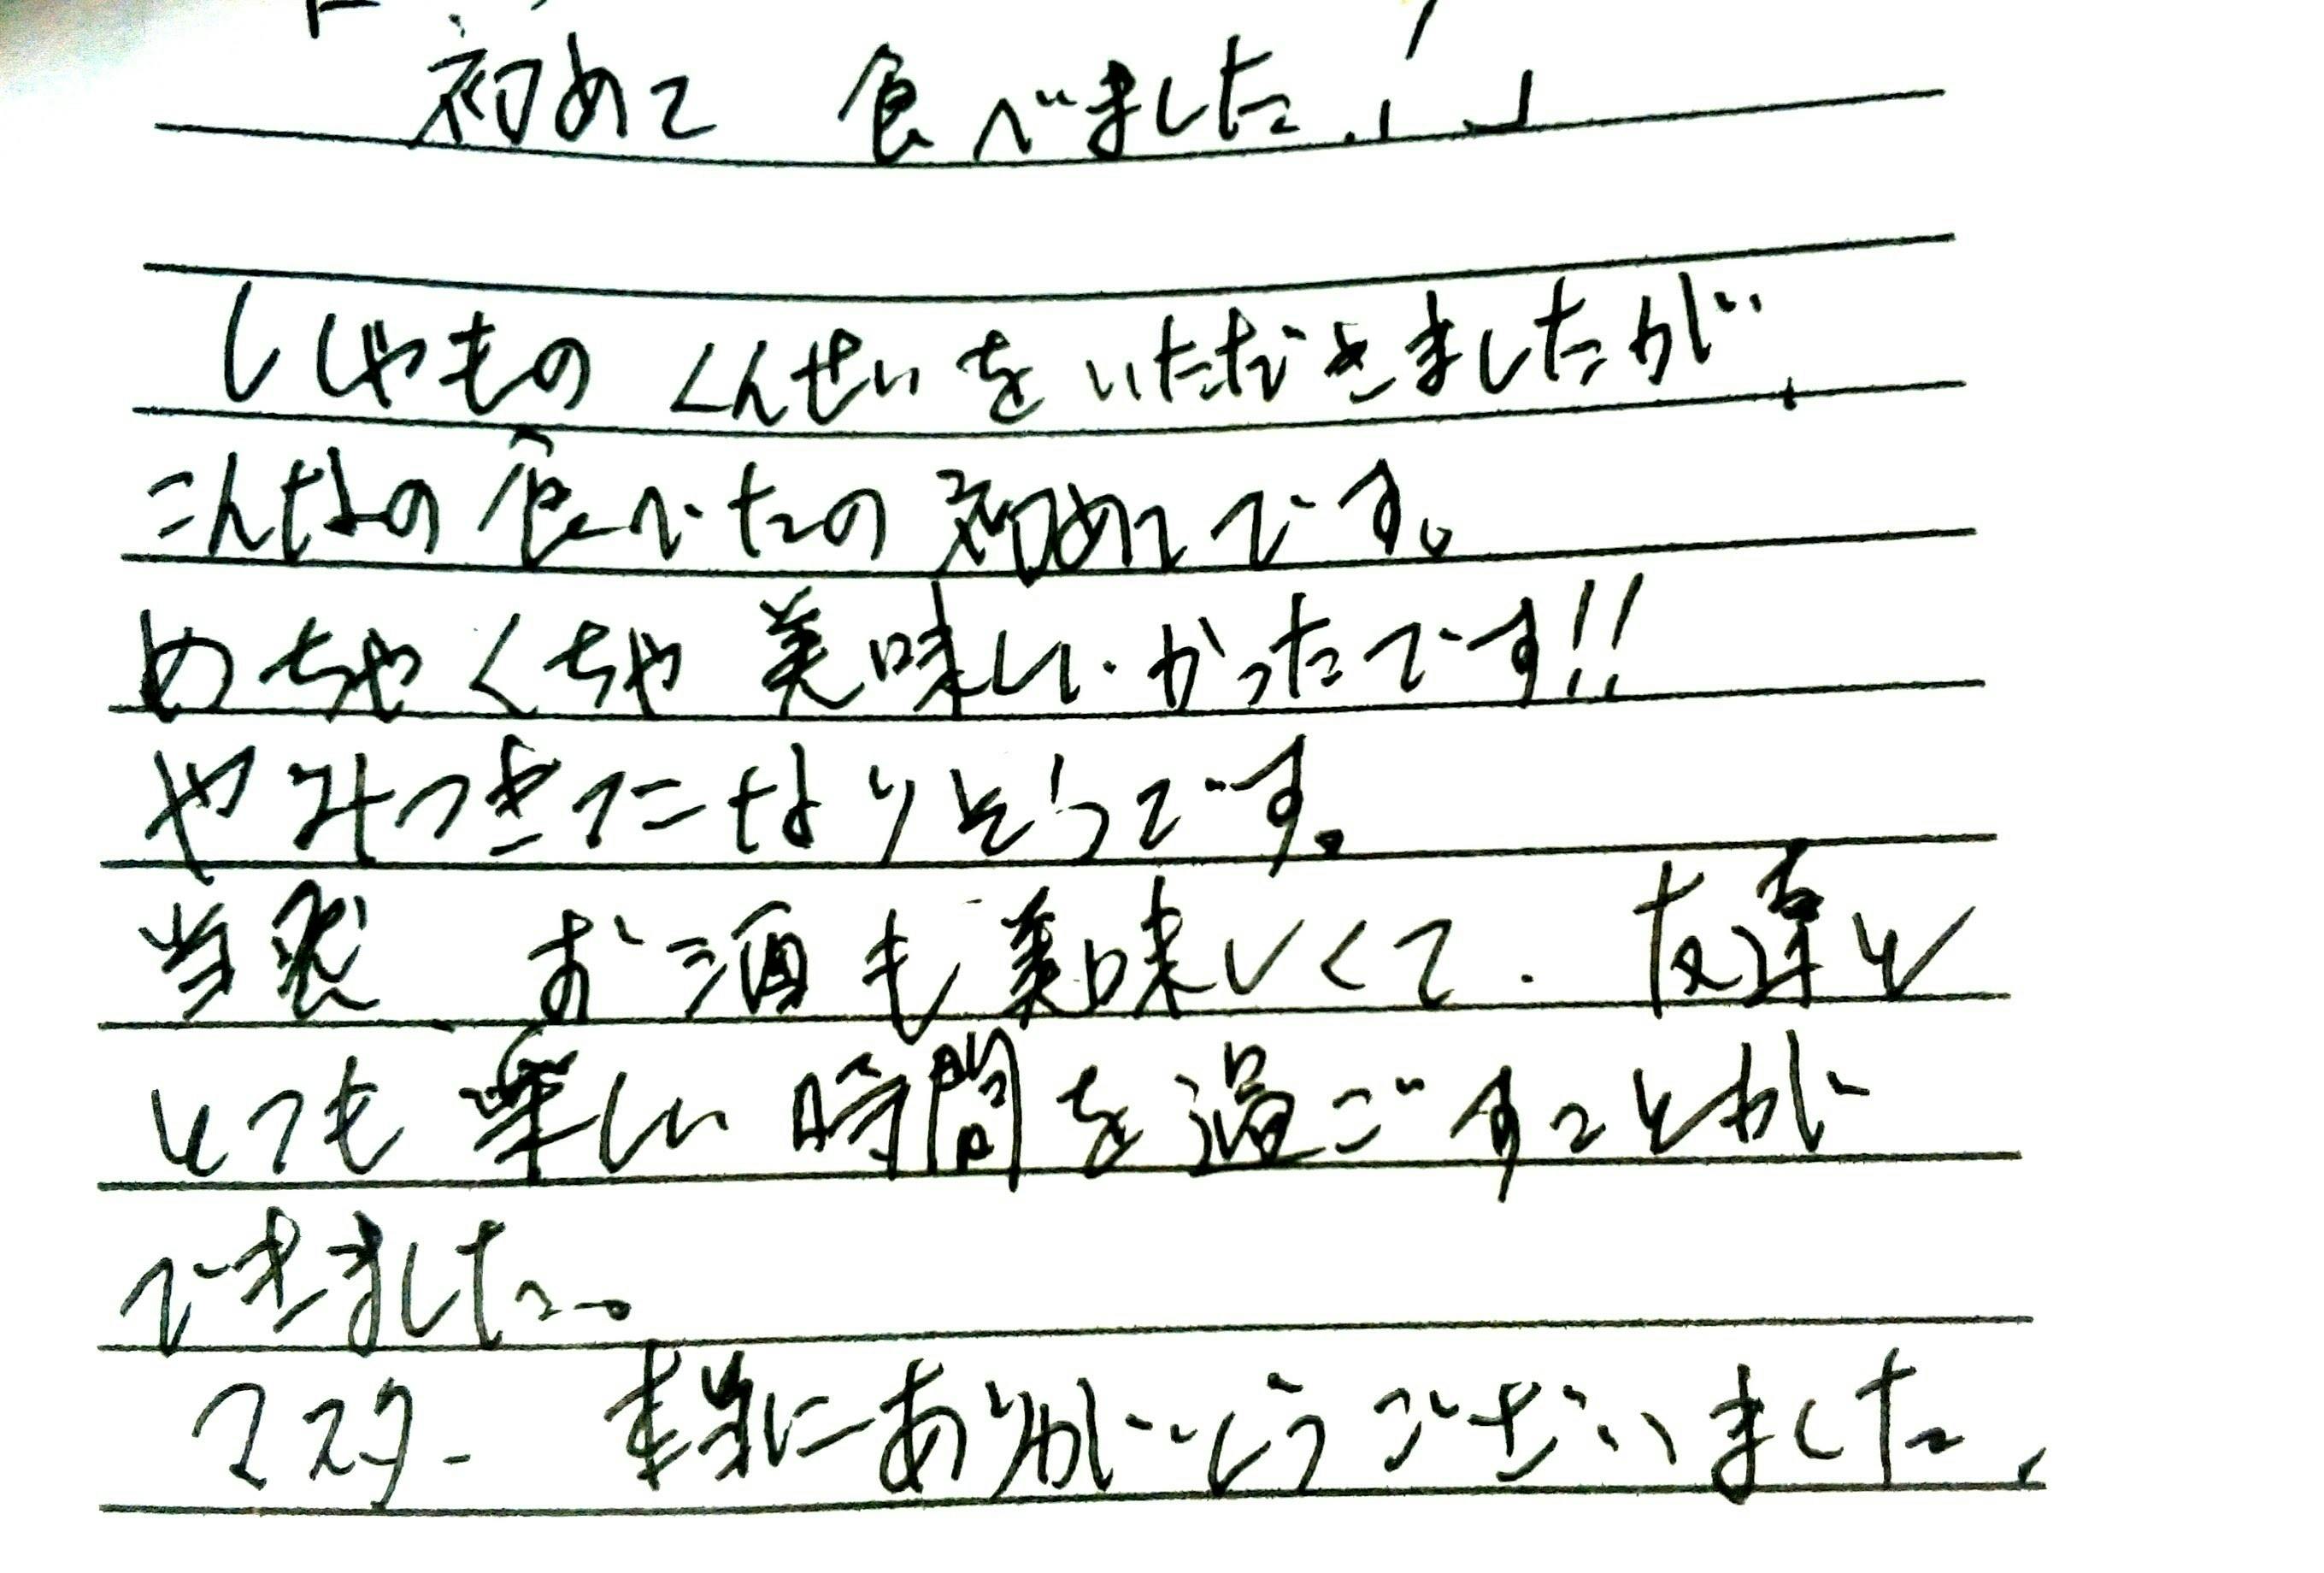 初めて 食べました!」
ししゃもの くんせいを いただきましたが、
こんなの食べたの初めてです。
めちゃくちゃ美味しいかったです!!
やみつきになりそうです。
当然、お酒も美味しくて、友達と
とても楽しい時間を過ごすことが
できました。
マスター 本当にありがとうございました、